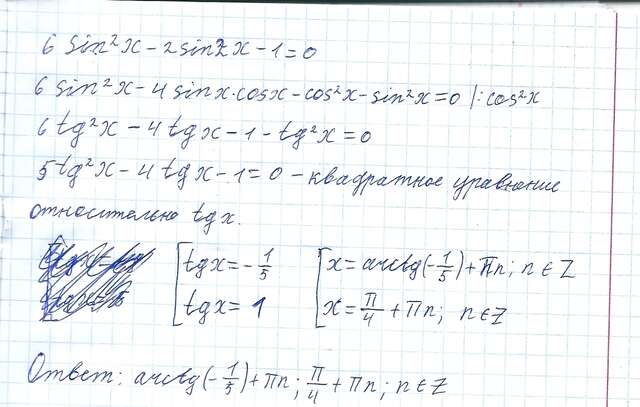 6 sin²x - 2 sin2x - 1 = 0
6 sin²x - 4 sinx·cosx - cos²x - sin²x = 0 |: cos²x
6 tg²x - 4 tgx - 1 - tg²x = 0
5 tg²x - 4 tgx - 1 = 0 - квадратное уравнение
относительно tgx.
[tgx = -1/5 [x = arctg(-1/5) + πn; n ∈ Z
tgx = 1 x = π/4 + πn; n ∈ Z
Ответ: arctg(-1/5) + πn; π/4 + πn; n ∈ Z